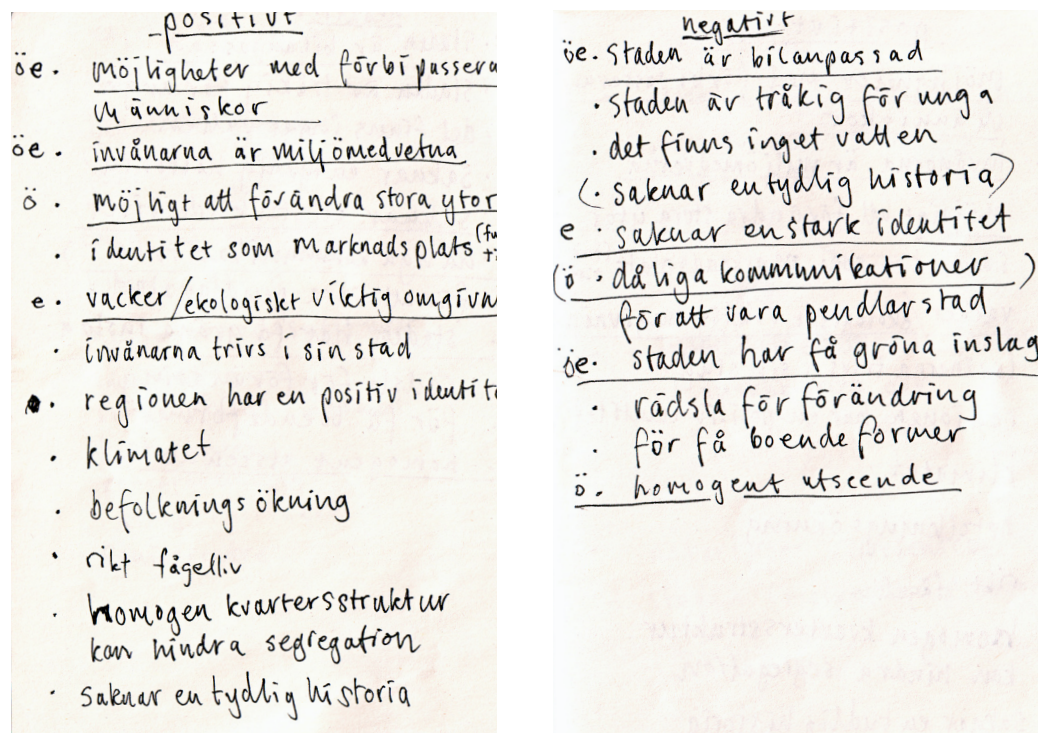 - positivt
öe. möjligheter med förbipassera
människor
öe. invånarna är miljömedvetna
ö. möjligt att förändra stora ytor
. identitet som marknadsplats (fu
e. vacker/ekologiskt viktig omgivn
. invånarna trivs i sin stad
. regionen har en positiv identite
. klimatet
. befolkningsökning
. rikt fågelliv
. homogen kvartersstruktur
kan hindra segregation
. saknar en tydlig historia
negativt
öe. staden är bilanpassad
. staden är tråkig för unga
. det finns inget vatten
(. saknar en tydlig historia)
e . saknar en stark identitet
(ö . dåliga kommunikationer )
för att vara pendlarstad
öe. staden har få gröna inslag
. rädsla för förändring
. för få boendeformer
ö. homogent utseende